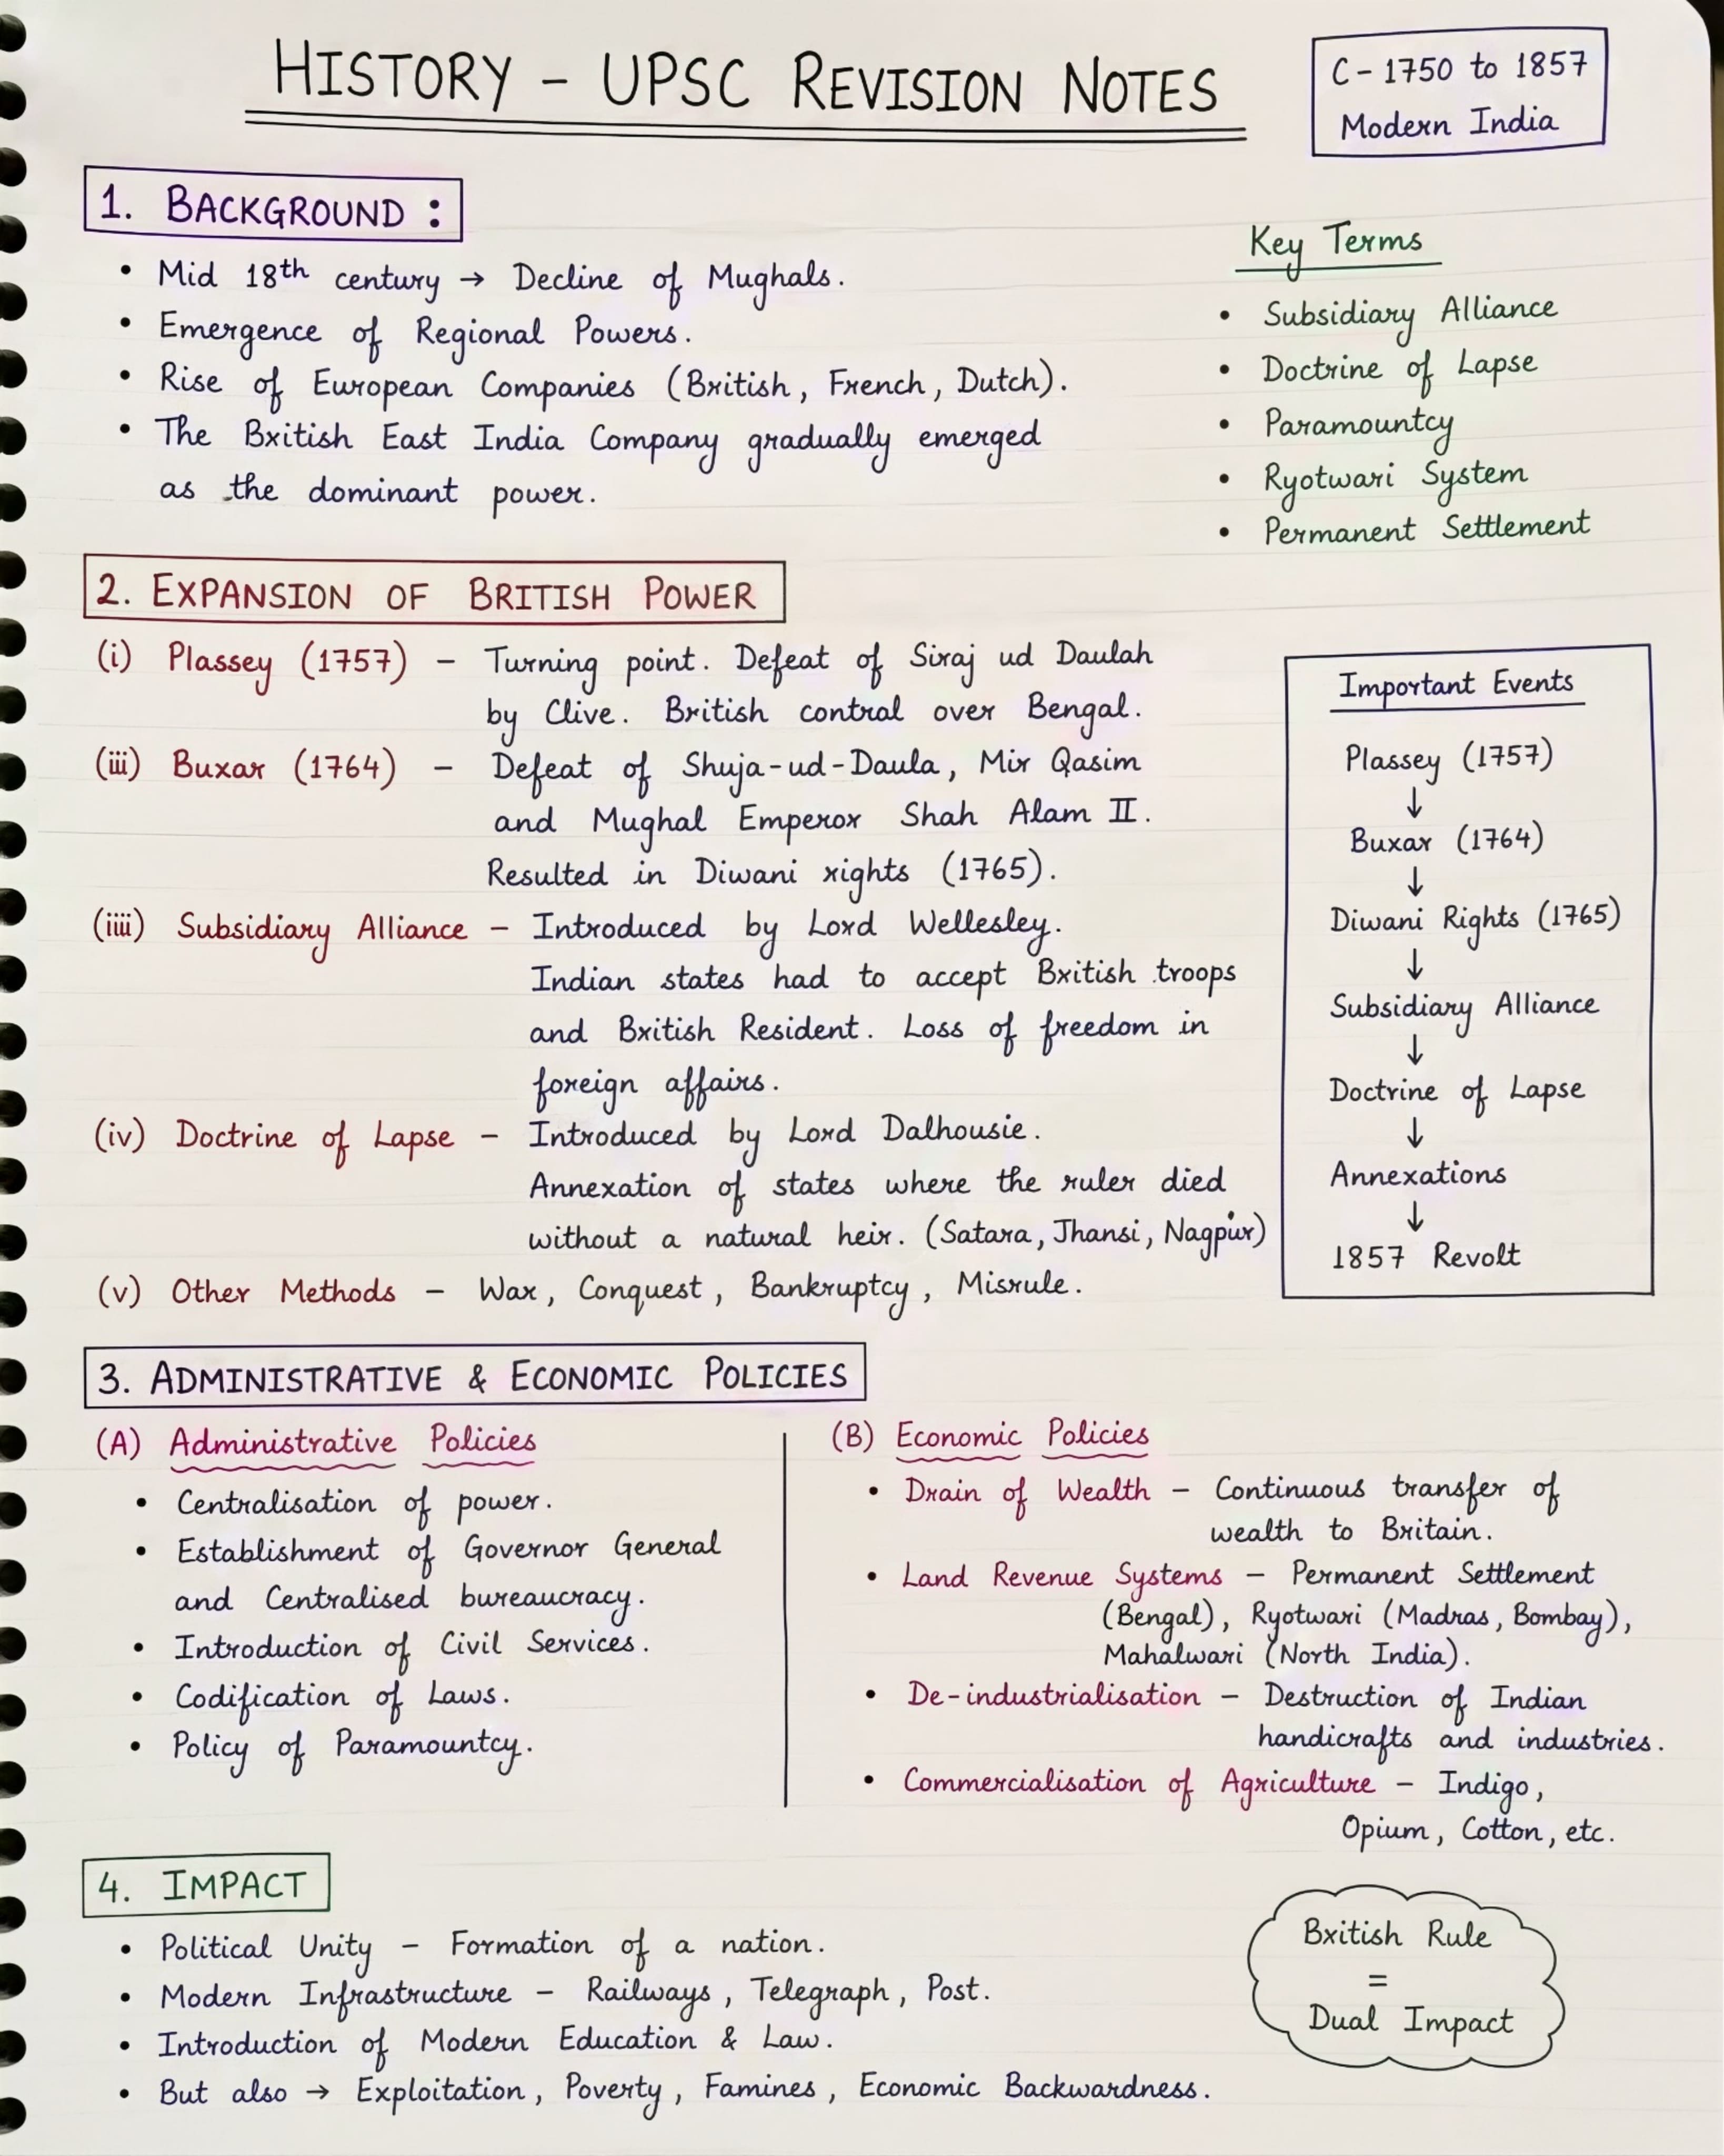 HISTORY - UPSC REVISION NOTES
C - 1750 to 1857
Modern India
1. BACKGROUND :
• Mid 18th century → Decline of Mughals.
• Emergence of Regional Powers.
• Rise of European Companies (British, French, Dutch).
• The British East India Company gradually emerged
as the dominant power.
Key Terms
• Subsidiary Alliance
• Doctrine of Lapse
• Paramountcy
• Ryotwari System
• Permanent Settlement
2. EXPANSION OF BRITISH POWER
(i) Plassey (1757) - Turning point. Defeat of Siraj ud Daulah
by Clive. British control over Bengal.
(iii) Buxar (1764) - Defeat of Shuja-ud-Daula, Mir Qasim
and Mughal Emperor Shah Alam II.
Resulted in Diwani rights (1765).
(iiii) Subsidiary Alliance - Introduced by Lord Wellesley.
Indian states had to accept British troops
and British Resident. Loss of freedom in
foreign affairs.
(iv) Doctrine of Lapse - Introduced by Lord Dalhousie.
Annexation of states where the ruler died
without a natural heir. (Satara, Jhansi, Nagpur)
(v) Other Methods - War, Conquest, Bankruptcy, Misrule.
Important Events
Plassey (1757)
↓
Buxar (1764)
↓
Diwani Rights (1765)
↓
Subsidiary Alliance
↓
Doctrine of Lapse
↓
Annexations
↓
1857 Revolt
3. ADMINISTRATIVE & ECONOMIC POLICIES
(A) Administrative Policies
• Centralisation of power.
• Establishment of Governor General
and Centralised bureaucracy.
• Introduction of Civil Services.
• Codification of Laws.
• Policy of Paramountcy.
(B) Economic Policies
• Drain of Wealth - Continuous transfer of
wealth to Britain.
• Land Revenue Systems - Permanent Settlement
(Bengal), Ryotwari (Madras, Bombay),
Mahalwari (North India).
• De-industrialisation - Destruction of Indian
handicrafts and industries.
• Commercialisation of Agriculture - Indigo,
Opium, Cotton, etc.
4. IMPACT
• Political Unity - Formation of a nation.
• Modern Infrastructure - Railways, Telegraph, Post.
• Introduction of Modern Education & Law.
• But also → Exploitation, Poverty, Famines, Economic Backwardness.
British Rule
=
Dual Impact